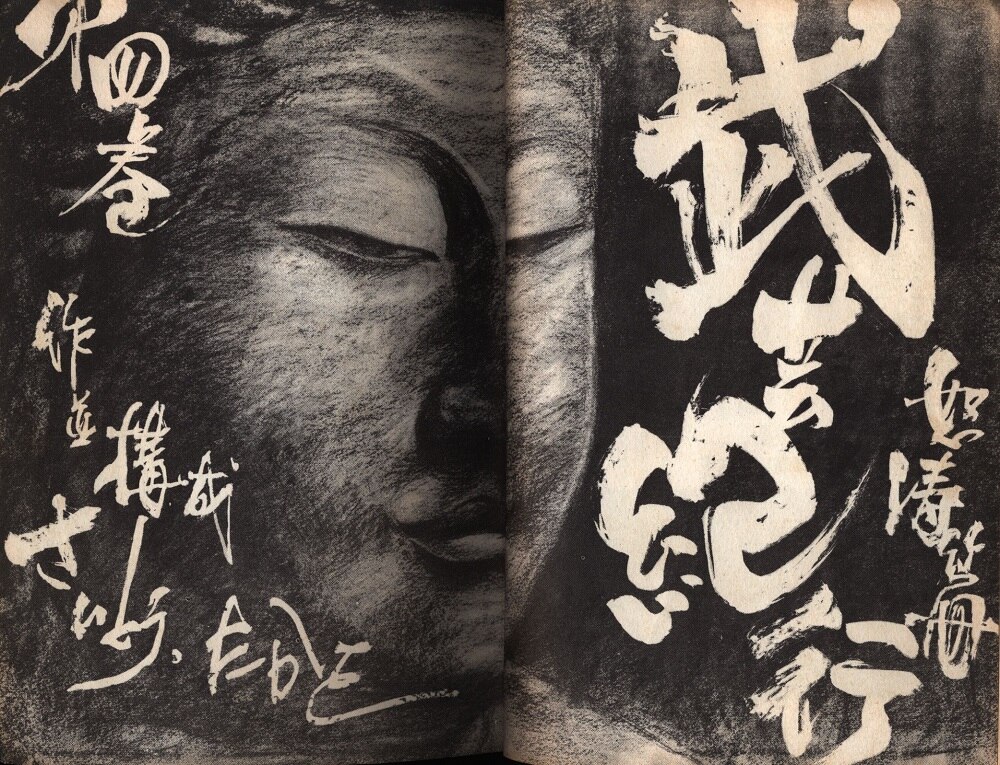 武芸紀行
第四巻
作並構成
さいとう・たかを